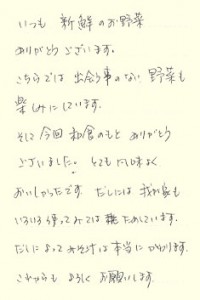 いつも 新鮮のお野菜
ありがとうございます。
こちらでは 出会う事のない 野菜も
楽しみにしています。
そして今回 和食のもと ありがとう
ございました。とても 風味よく
おいしかったです。だしには 我が家も
いろいろ 使ってみては ためしています。
だしによって お汁は 本当に かわります。
これからも よろしく お願いします。